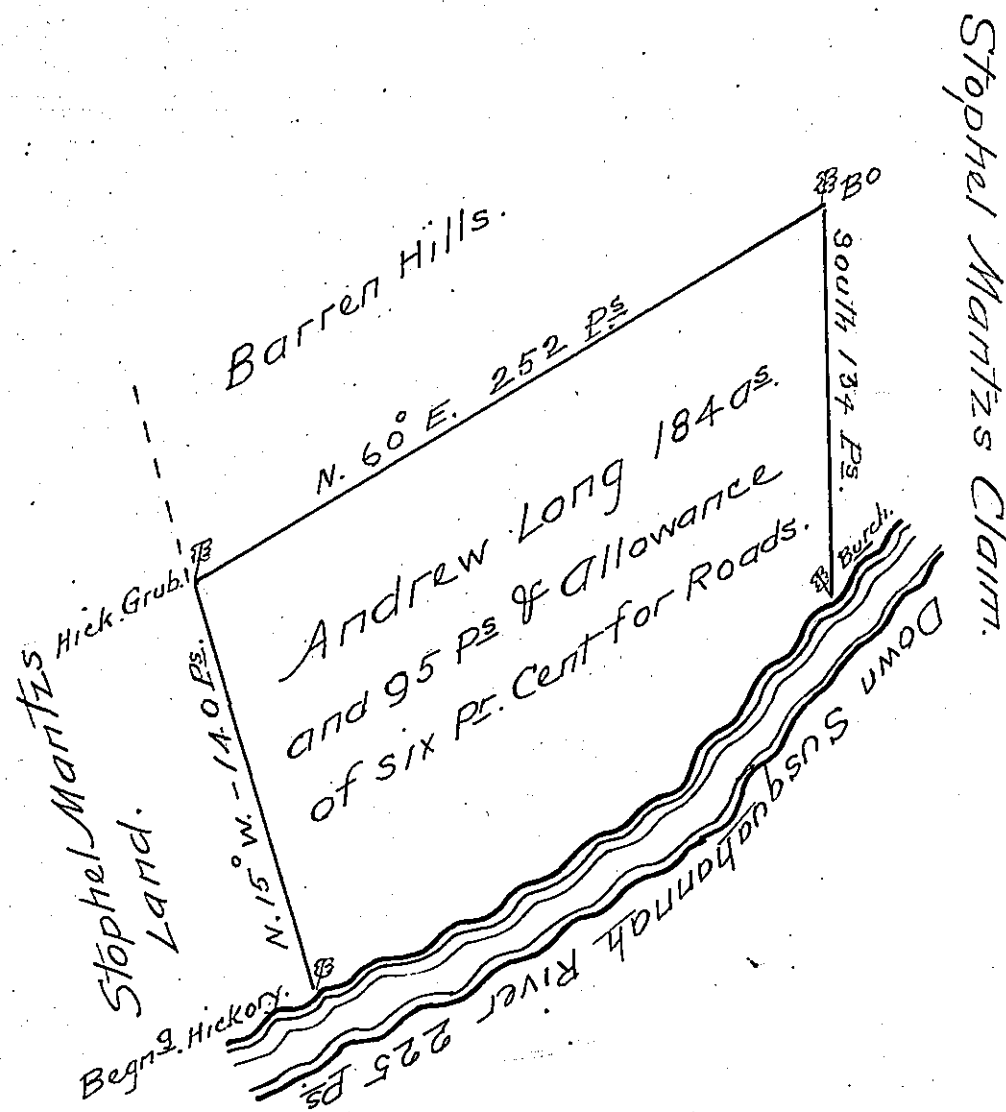 Stophel Mantzs Claim.
Bo
Barren Hills.
N. 60° E. 252 Ps
South 134 Ps.
Andrew Long 184 as.
and 95 Ps & allowance
of six Pr. Cent for Roads.
Burch.
Hick. Grub.
Stophel Mantzs
Land.
N. 15° W. - 140 Ps.
Begng. Hickory.
Down Susquahannah River 225 Ps